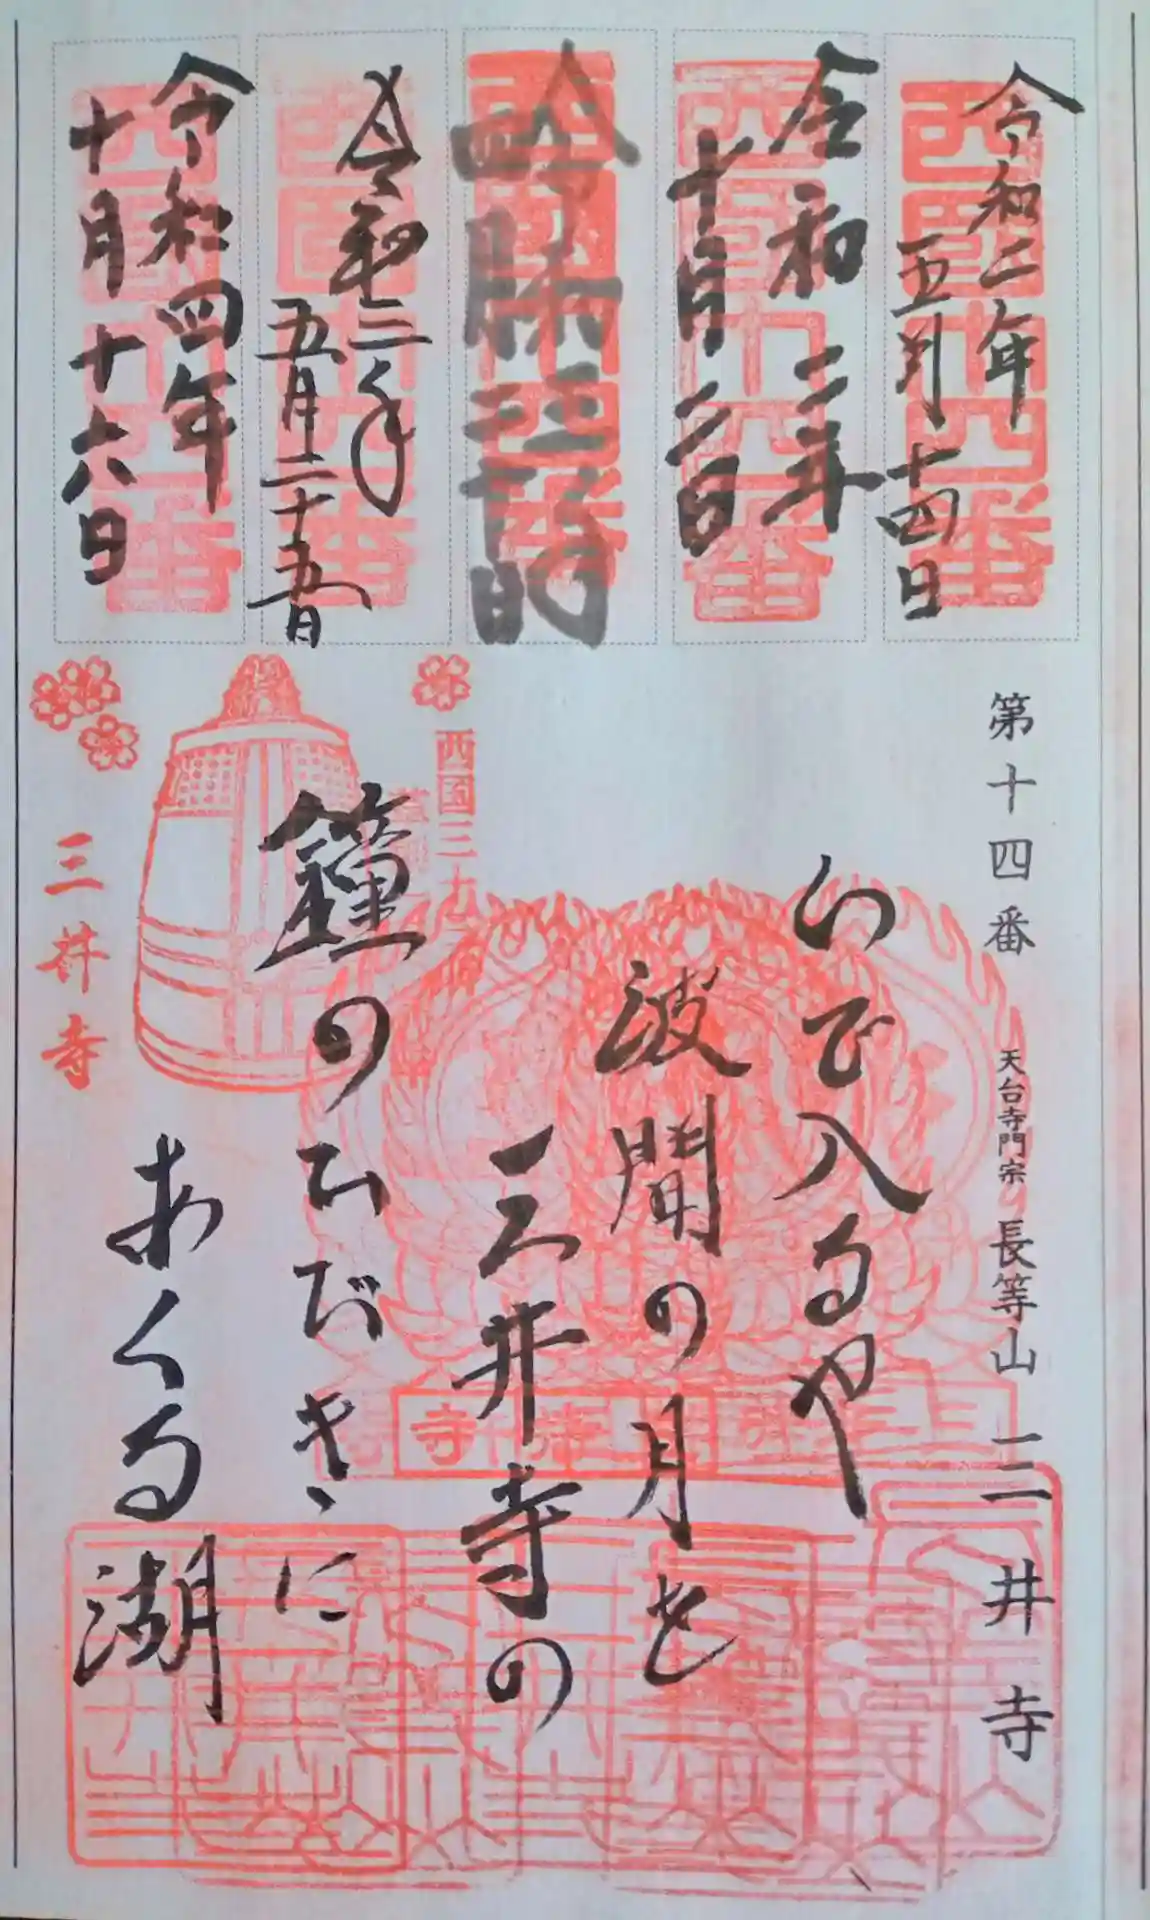 令和二年
五月十四日
西国十四番
令和二年
十月二日
西国十四番
西国十四番
令和三年
五月二十五日
西国十四番
令和四年
十月十六日
西国十四番
第十四番 天台寺門宗 長等山 三井寺
いで入るや
波間の月を
三井寺の
鐘のひびきに
あくる湖
西国三十
三井寺